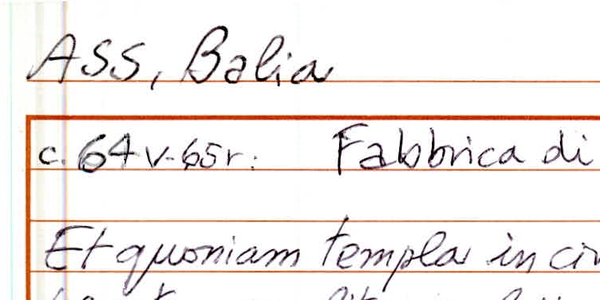 ASS, Balia
c. 64v-65r: Fabbrica di
Et quoniam templa in civ